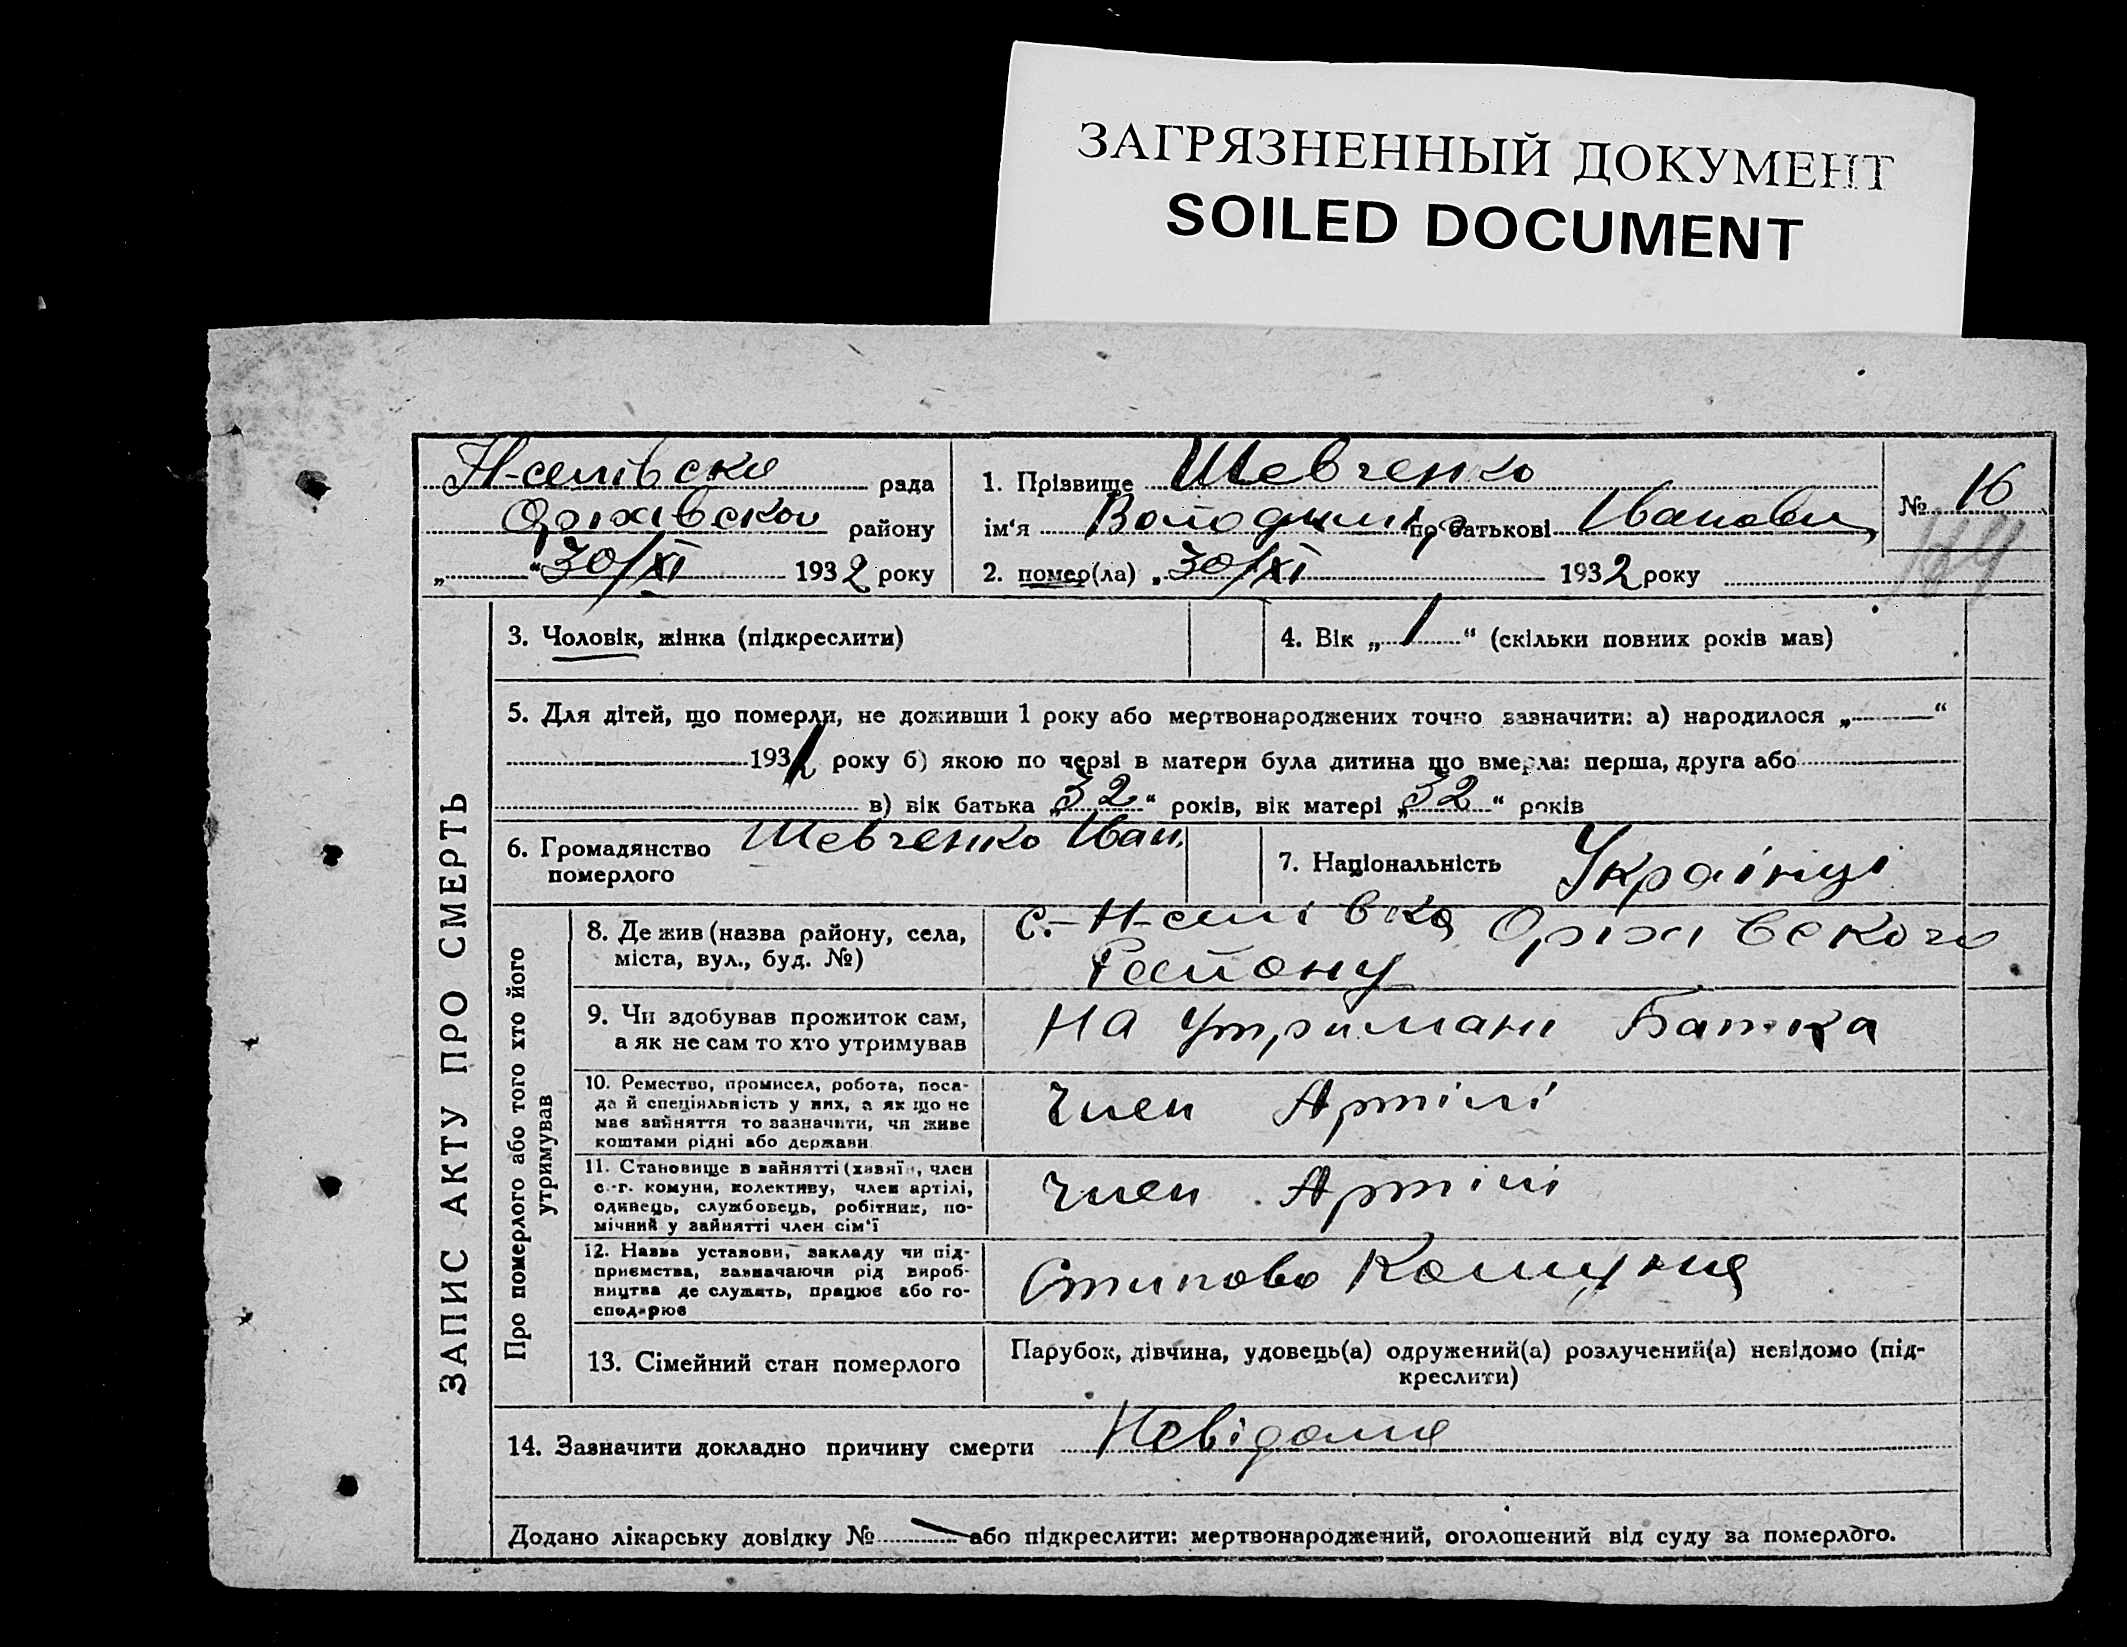 ЗАГРЯЗНЕННЫЙ ДОКУМЕНТ
SOILED DOCUMENT
Н-селівска рада
Оріхівского району
„ “ 30/XI 1932 року
1. Прізвище Шевченко
ім‘я Володимир по батькові Іванови
2. помер(ла) „ 30/XI 1932 року
№ 16
ЗАПИС АКТУ ПРО СМЕРТЬ
3. Чоловік, жінка (підкреслити)
4. Вік „ 1 “ (скільки повних років мав)
5. Для дітей, що померли, не доживши 1 року або мертвонароджених точно зазначити: а) народилося „ “
1931 року б) якою по черзі в матери була дитина що вмерла: перша, друга або
в) вік батька „ 32 “ років, вік матері „ 32 “ років
6. Громадянство Шевченко Иван
померлого
7. Національність Українці
Про померлого або того хто його
утримував
8. Де жив (назва району, села,
міста, вул., буд. №)
с.-Н-селівка Оріхівского
Району
9. Чи здобував прожиток сам,
а як не сам то хто утримував
На утримані Батка
10. Ремество, промисел, робота, поса-
да й спеціяльність у них, а як що не
має зайняття то зазначити, чи живе
коштами рідні або держави
Член Артілі
11. Становище в зайнятті (хазяїн, член
с.-г. комуни, колективу, член артілі,
одинець, службовець, робітник, по-
мічний у зайнятті член сім‘ї
Член Артілі
12. Назва установи, закладу чи під-
приємства, зазначаючи рід вироб-
ництва де служить, працює або го-
сподарює
Комуна
13. Сімейний стан померлого
Парубок, дівчина, удовець(а) одружений(а) розлучений(а) невідомо (під-
креслити)
14. Зазначити докладно причину смерти Невідома
Додано лікарську довідку № або підкреслити: мертвонароджений, оголошений від суду за померлого.